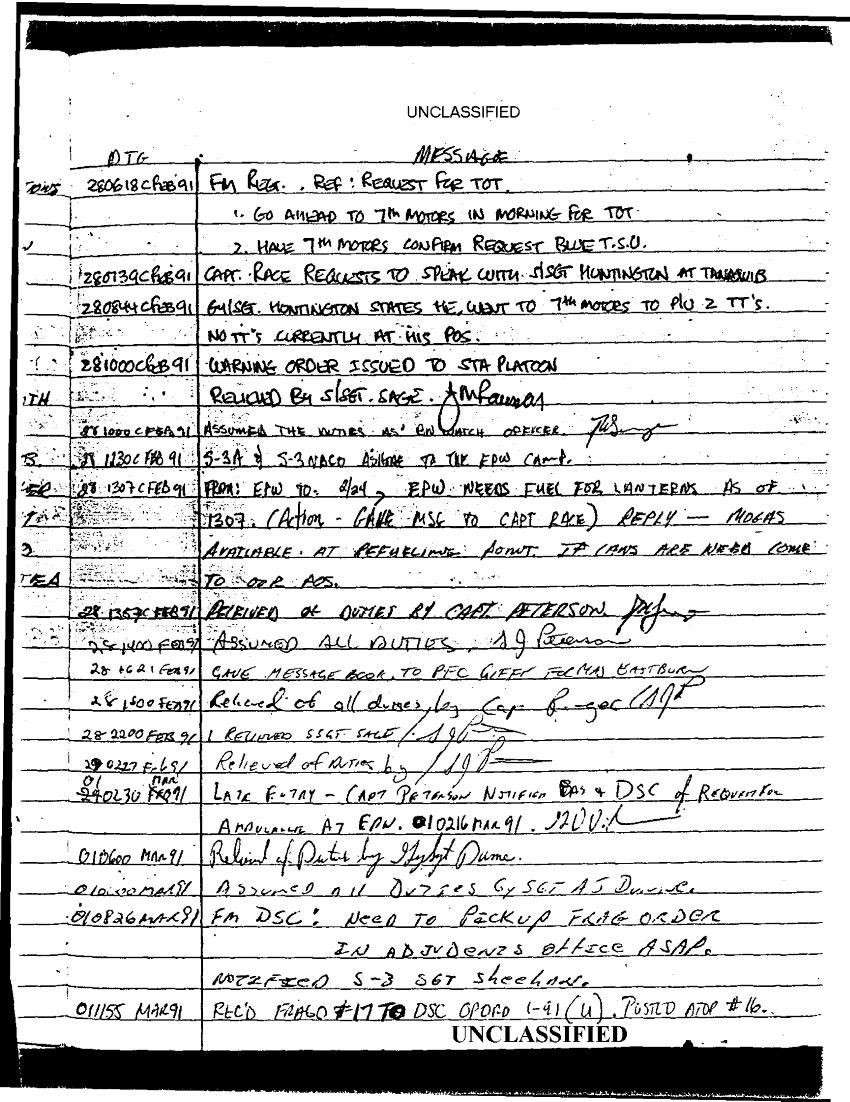 UNCLASSIFIED
DTG MESSAGE
280618CFEB91 FM REGT. . REF: REQUEST FOR TOT.
1. GO AHEAD TO 7TH MOTORS IN MORNING FOR TOT
2. HAVE 7TH MOTORS CONFIRM REQUEST BLUE T.S.U.
280739CFEB91 CAPT. RACE REQUESTS TO SPEAK WITH S/SGT HUNTINGTON AT
280844CFEB91 GY/SGT. HUNTINGTON STATES HE, WENT TO 7TH MOTORS TO P/U 2 TT'S.
NO TT'S CURRENTLY AT HIS POS.
281000CFEB91 WARNING ORDER ISSUED TO STA PLATOON
TH RELIEVED BY S/SGT. SAGE.
281000CFEB91 ASSUMED THE DUTIES AS BN WATCH OFFICER.
28 1230C FEB 91 S-3A & S-3 NACO TO THE EPW CAMP.
ER 28 1307CFEB91 FROM: EPW TO: 2/24, EPW NEEDS FUEL FOR LANTERNS AS OF
1307. (Action - GAVE MSG TO CAPT RACE) REPLY — MOGAS
AVAILABLE AT REFUELING POINT. IF CANS ARE NEED COME
TEA TO OUR POS.
28 1357C FEB91 RELIEVED OF DUTIES BY CAPT. PETERSON
28 1400 FEB91 ASSUMED ALL DUTIES, S J Peterson
28 1621 FEB91 GAVE MESSAGE BOOK TO PFC FOR MAJ EASTBURN
28 1800 FEB91 Relieved of all duties, by Cap
28 2200 FEB 91 I RELIEVED SSGT SAGE / SJP
29 0227 Feb 91 Relieved of Duties by / SJP
01 MAR
290230 FEB91 LATE ENTRY - CAPT PETERSON NOTIFIED BAS & DSC of REQUEST FOR
AMBULANCE AT EPW. 010216MAR91.
010600 MAR91 Relieved of Duties by GySgt
MAR91 ASSUMED All DUTIES GySGT AJ
010826MAR91 FM DSC: NEED TO PICKUP FRAG ORDER
IN ADJUDENTS OFFICE ASAP.
NOTIFIED S-3 SGT Sheehan.
011155 MAR91 REC'D FRAGO #17 TO DSC OPORD 1-91 (U). POSTED ATOP #16.
UNCLASSIFIED